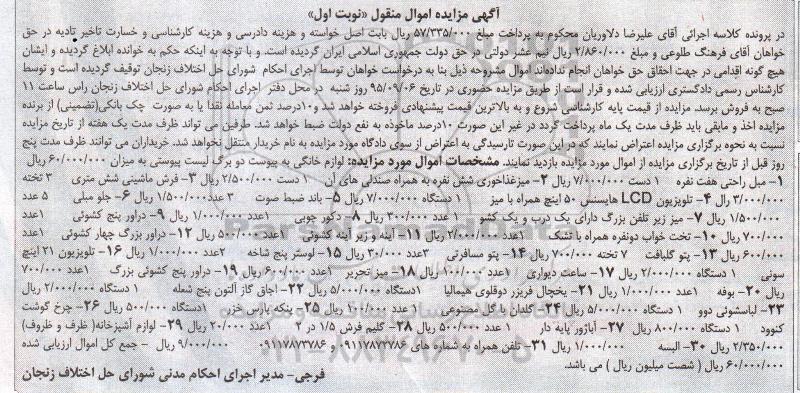 آگهی مزایده اموال منقول «نوبت اول»
در پرونده کلاسه اجرائی آقای علیرضا دلاوریان محکوم به پرداخت مبلغ ۵۷/۳۳۵/۰۰۰ ریال بابت اصل خواسته و هزینه دادرسی و هزینه کارشناسی و خسارت تاخیر تادیه در حق
خواهان آقای فرهنگ طلوعی و مبلغ ۲/۸۶۰/۰۰۰ ریال نیم عشر دولتی در حق دولت جمهوری اسلامی ایران گردیده است. و با توجه به اینکه حکم به خوانده ابلاغ گردیده و ایشان
هیچ گونه اقدامی در جهت احقاق حق خواهان انجام نداده‌اند اموال مشروحه ذیل بنا به درخواست خواهان توسط اجرای احکام شورای حل اختلاف زنجان توقیف گردیده است و توسط
کارشناس رسمی دادگستری ارزیابی شده و قرار است از طریق مزایده حضوری در تاریخ ۹۵/۰۹/۰۶ روز شنبه در محل دفتر اجرای احکام شورای حل اختلاف زنجان راس ساعت ۱۱
صبح به فروش برسد. مزایده از قیمت پایه کارشناسی شروع و به بالاترین قیمت پیشنهادی فروخته خواهد شد و۱۰درصد ثمن معامله نقدا یا به صورت چک بانکی(تضمینی) از برنده
مزایده اخذ و مابقی باید ظرف مدت یک ماه پرداخت گردد در غیر این صورت ۱۰درصد ماخوذه به نفع دولت ضبط خواهد شد. طرفین می تواند ظرف مدت یک هفته از تاریخ مزایده
نسبت به نحوه برگزاری مزایده اعتراض نمایند که در این صورت تارسیدگی به اعتراض از سوی دادگاه مورد مزایده به نام خریدار منتقل نخواهد شد. خریداران می توانند ظرف مدت پنج
روز قبل از تاریخ برگزاری مزایده از اموال مورد مزایده بازدید نمایند. مشخصات اموال مورد مزایده: لوازم خانگی به پیوست دو برگ لیست پیوستی به میزان ۶۰/۰۰۰/۰۰۰ ریال
۱- مبل راحتی هفت نفره ۱ دست ۷/۰۰۰/۰۰۰ ریال ۲- میزغذاخوری شش نفره به همراه صندلی های آن ۱ دست ۲/۵۰۰/۰۰۰ ریال ۳- فرش ماشینی شش متری ۳ تخته
۳/۰۰۰/۰۰۰ رال ۴- تلویزیون LCD هایسنس ۵۰ اینچ همراه با میز ۱ دستگاه ۷/۰۰۰/۰۰۰ ریال ۵- باند ضبط صوت ۳ عدد۱/۵۰۰/۰۰۰ ریال ۶- جلو مبلی ۵ عدد
۱/۵۰۰/۰۰۰ ریال ۷- میز زیر تلفن بزرگ دارای یک درب و یک کشو ۱عدد ۳۰۰/۰۰۰ ریال ۸- دکور چوبی ۱عدد ۱/۰۰۰/۰۰۰ ریال ۹- دراور پنج کشوئی ۱عدد
۷۰۰/۰۰۰ ریال ۱۰- تخت خواب دونفره همراه با تشک ۱عدد ۲/۰۰۰/۰۰۰ ریال ۱۱- آینه و زیر آینه کشوئی ۱عدد۵۰۰/۰۰۰ ریال ۱۲- دراور بزرگ چهار کشوئی ۱عدد
۶۰۰/۰۰۰ ریال ۱۳- پتو گلبافت ۷ تخته ۷۰۰/۰۰۰ ریال ۱۴- پتو مسافرتی ۳عدد ۳۰/۰۰۰ ریال ۱۵- لوستر پنج شاخه ۲عدد ۱/۰۰۰/۰۰۰ ریال ۱۶- تلویزیون ۲۱ اینچ
سونی ۱ دستگاه ۲/۰۰۰/۰۰۰ ریال ۱۷- ساعت دیواری ۱عدد ۱۰۰/۰۰۰ ریال ۱۸- میز تحریر ۱عدد ۶۰۰/۰۰۰ ریال ۱۹- دراور پنج کشوئی بزرگ ۱عدد ۷۰۰/۰۰۰
ریال ۲۰- بوفه ۱عدد ۱/۰۰۰/۰۰۰ ریال ۲۱- یخچال فریزر دوقلوی هیمالیا ۱دستگاه ۵/۰۰۰/۰۰۰ ریال ۲۲- اجاق گاز آلتون پنج شعله ۱ دستگاه ۲/۰۰۰/۰۰۰ ریال
۲۳- لباسشوئی دوو ۱ دستگاه ۵/۰۰۰/۰۰۰ ریال ۲۴- گلدان باگل مصنوعی ۱عدد ۱۰۰/۰۰۰ ریال ۲۵- پنکه پارس خزر ۱دستگاه ۵۰۰/۰۰۰ ریال ۲۶- چرخ گوشت
کنوود ۱ دستگاه ۸۰۰/۰۰۰ ریال ۲۷- آباژور پایه دار ۱ عدد ۵۰۰/۰۰۰ ریال ۲۸- گلیم فرش ۱/۵ در ۲ ۱عدد ۲۰/۰۰۰ ریال ۲۹- لوازم آشپزخانه( ظرف و ظروف)
۲/۳۵۰/۰۰۰ ریال ۳۰- البسه ۱/۰۰۰/۰۰۰ ریال ۳۱- تلفن همراه به شماره های ۰۹۱۱۷۸۷۳۷۸۶ و ۰۹۱۱۷۸۷۳۷۸۶ ۹/۰۰۰/۰۰۰ ریال - جمع کل اموال ارزیابی شده
۶۰/۰۰۰/۰۰۰ ریال ( شصت میلیون ریال ) می باشد.
فرجی- مدیر اجرای احکام مدنی شورای حل اختلاف زنجان